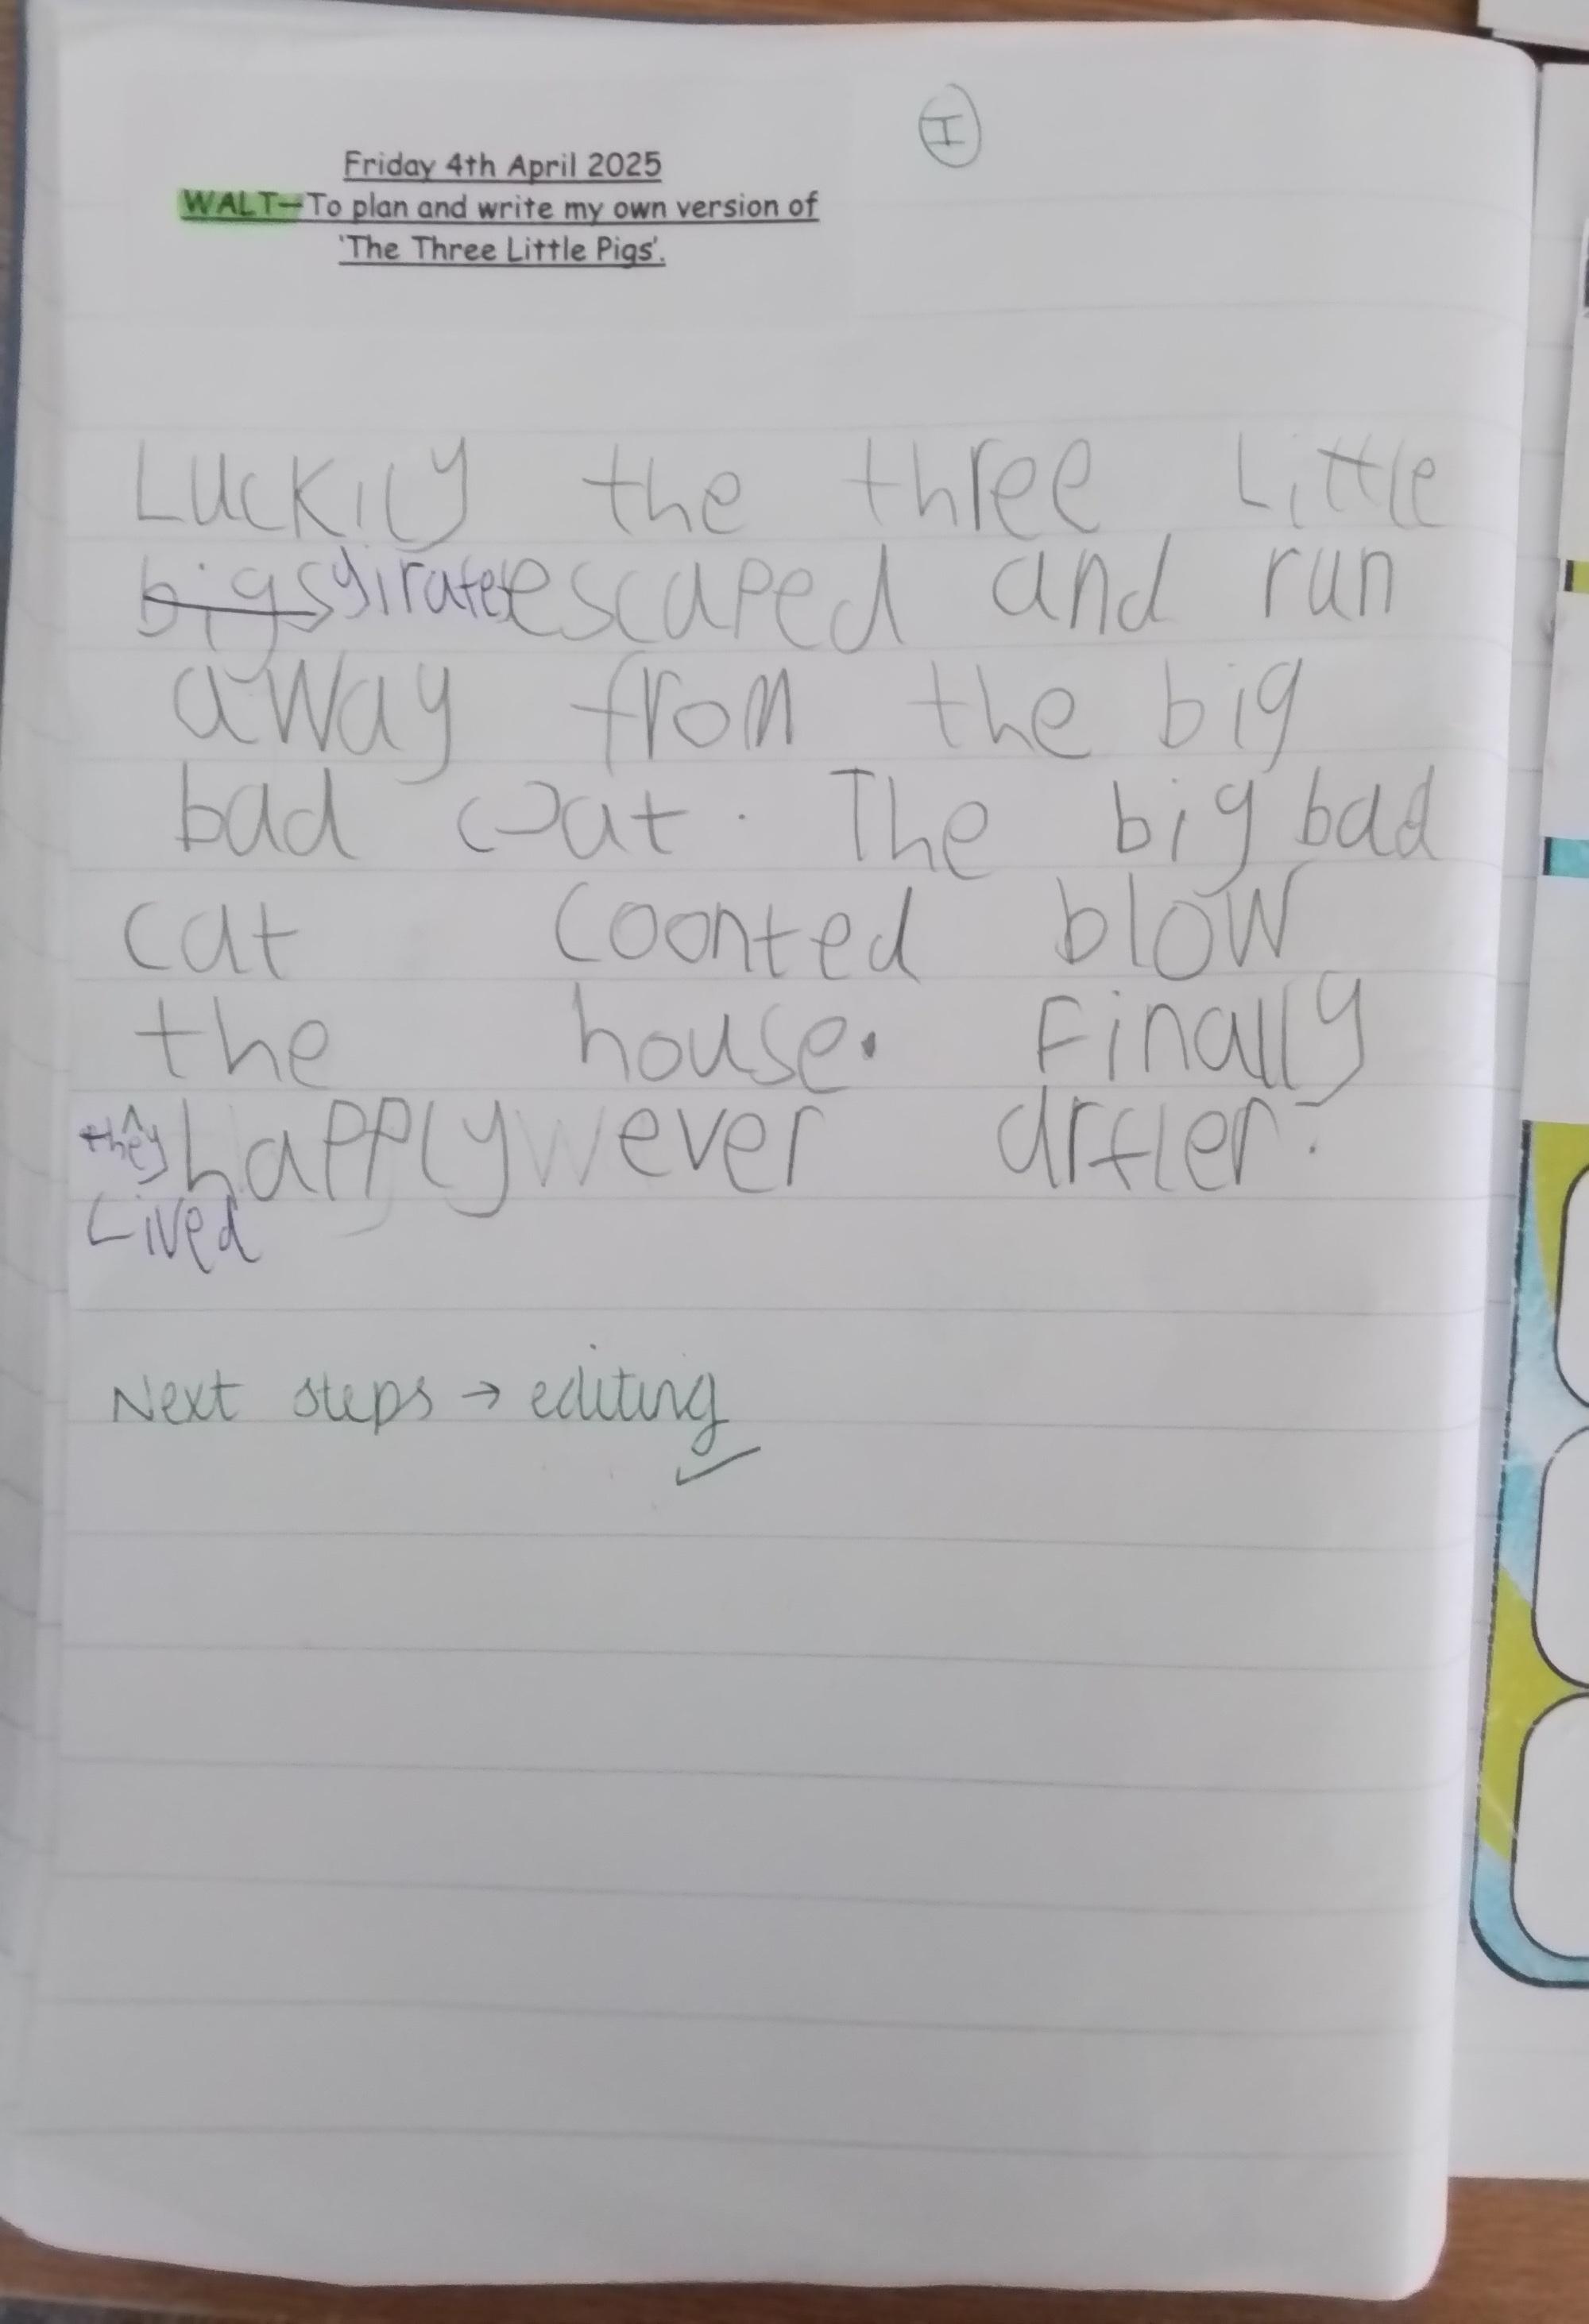 I
Friday 4th April 2025
WALT—To plan and write my own version of
'The Three Little Pigs'.
Luckily the three Little
bigs girafe escaped and run
away from the big
bad cat. The big bad
cat coonted blow
the house. Finally
they happly ever arfter.
Lived
Next steps → editing